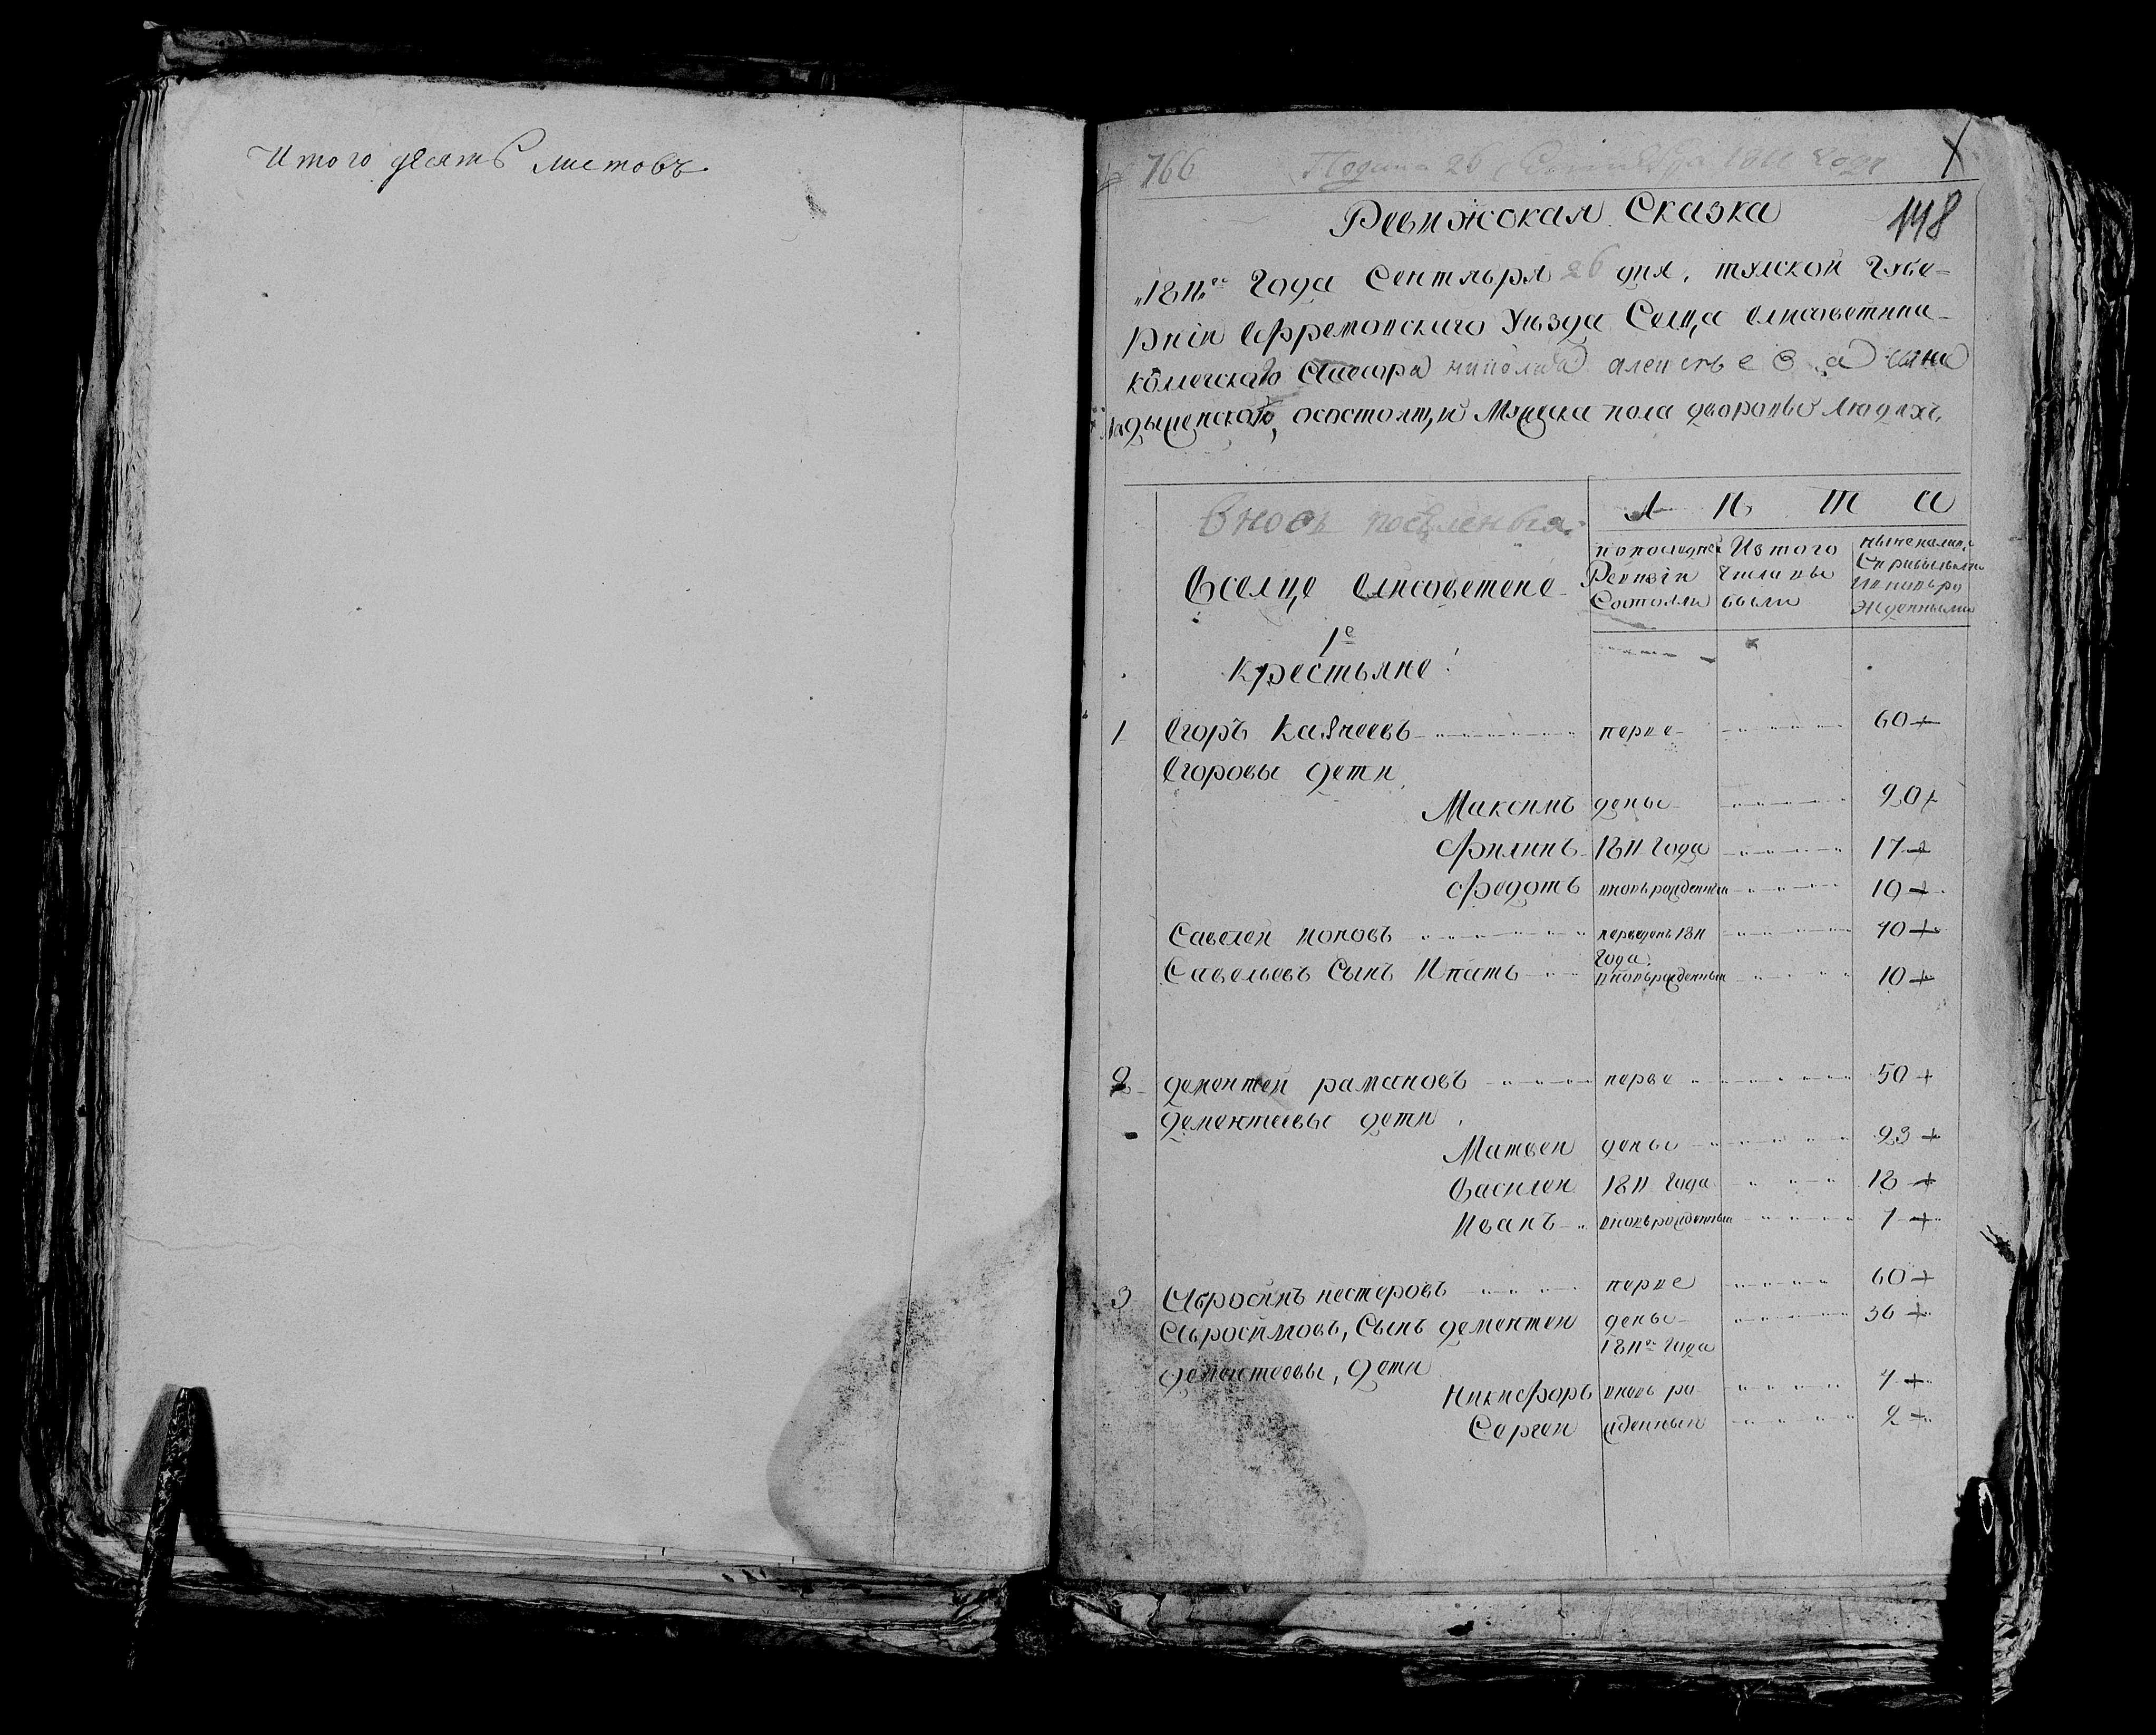 Итого десять листовъ
766 Подана 26 Сентября 1811 года
Ревижская Сказка
148
"1811" го Года Сентября 26 дня, тулской Губе-
рніи ефремовскаго Уѣзда Селца елисаветина-
колежскаго Асесора николая алексѣева сына
осостоящи Мужеска пола дворовы людяхъ
вновь поселеныя
Лѣта
Вселце елисаветене
попоследней Ревизіи Состояли
Изтого числа выбыли
ныне налицо
1е
крестьяне
1 Егоръ перве 60
Егоровы дети
Максимъ дены 20
Филипъ 1811 Года 17
Федотъ вновьрожденныи 10
Савелеи поповъ переведенъ 1811 Года 40
Савельевъ Сынъ Ипатъ вновьрожденныи 10
2 дементеи рамановъ перве 50
дементеевы дети
Матвеи дены 23
Василеи 1811 Года 18
Иванъ вновьрожденныи 7
3 Абросимъ нестеровъ перве 60
Абросимовъ, Сынъ дементеи дены 36
1811 го Года
дементеевы, дети
Никифоръ вновь ро 4
Сергеи жденныи 2